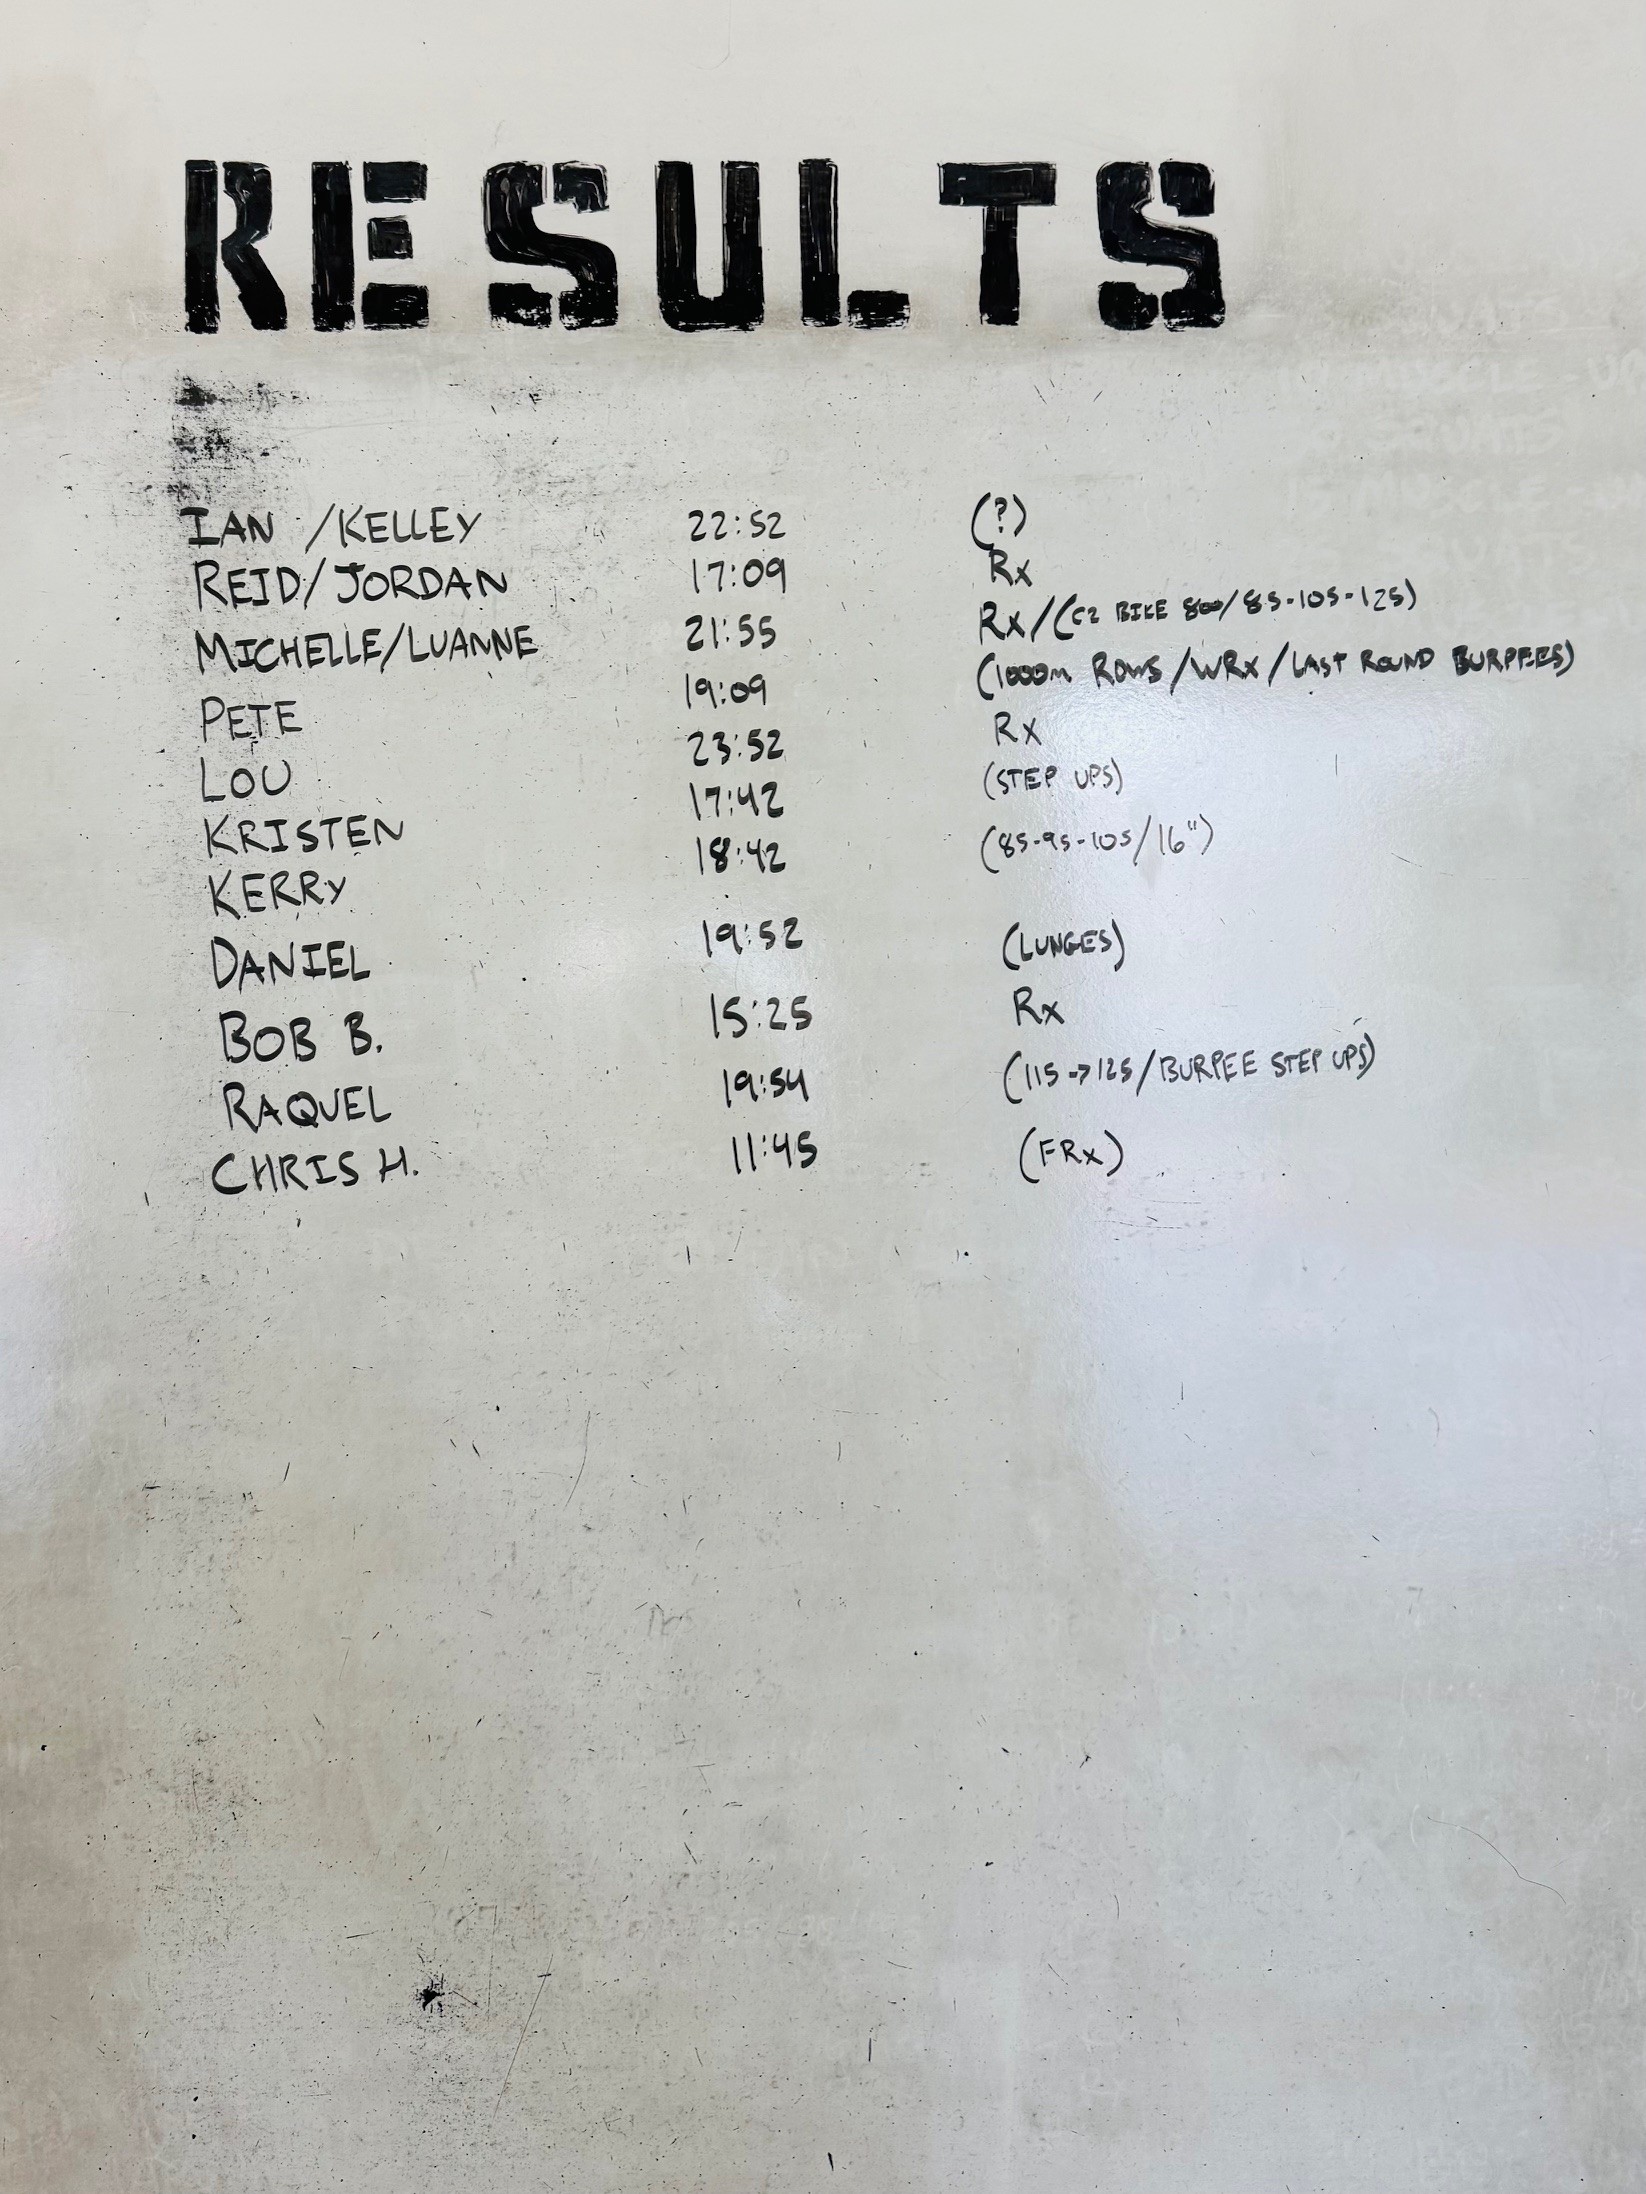 RESULTS
IAN /KELLEY 22:52 (?)
REID/JORDAN 17:09 Rx
MICHELLE/LUANNE 21:55 Rx/(C2 BIKE 800/85-105-125)
PETE 19:09 (1000m ROWS/WRx/LAST ROUND BURPEES)
LOU 23:52 Rx
KRISTEN 17:42 (STEP UPS)
KERRY 18:42 (85-95-105/16")
DANIEL 19:52 (LUNGES)
BOB B. 15:25 Rx
RAQUEL 19:54 (115->125/BURPEE STEP UPS)
CHRIS H. 11:45 (FRx)